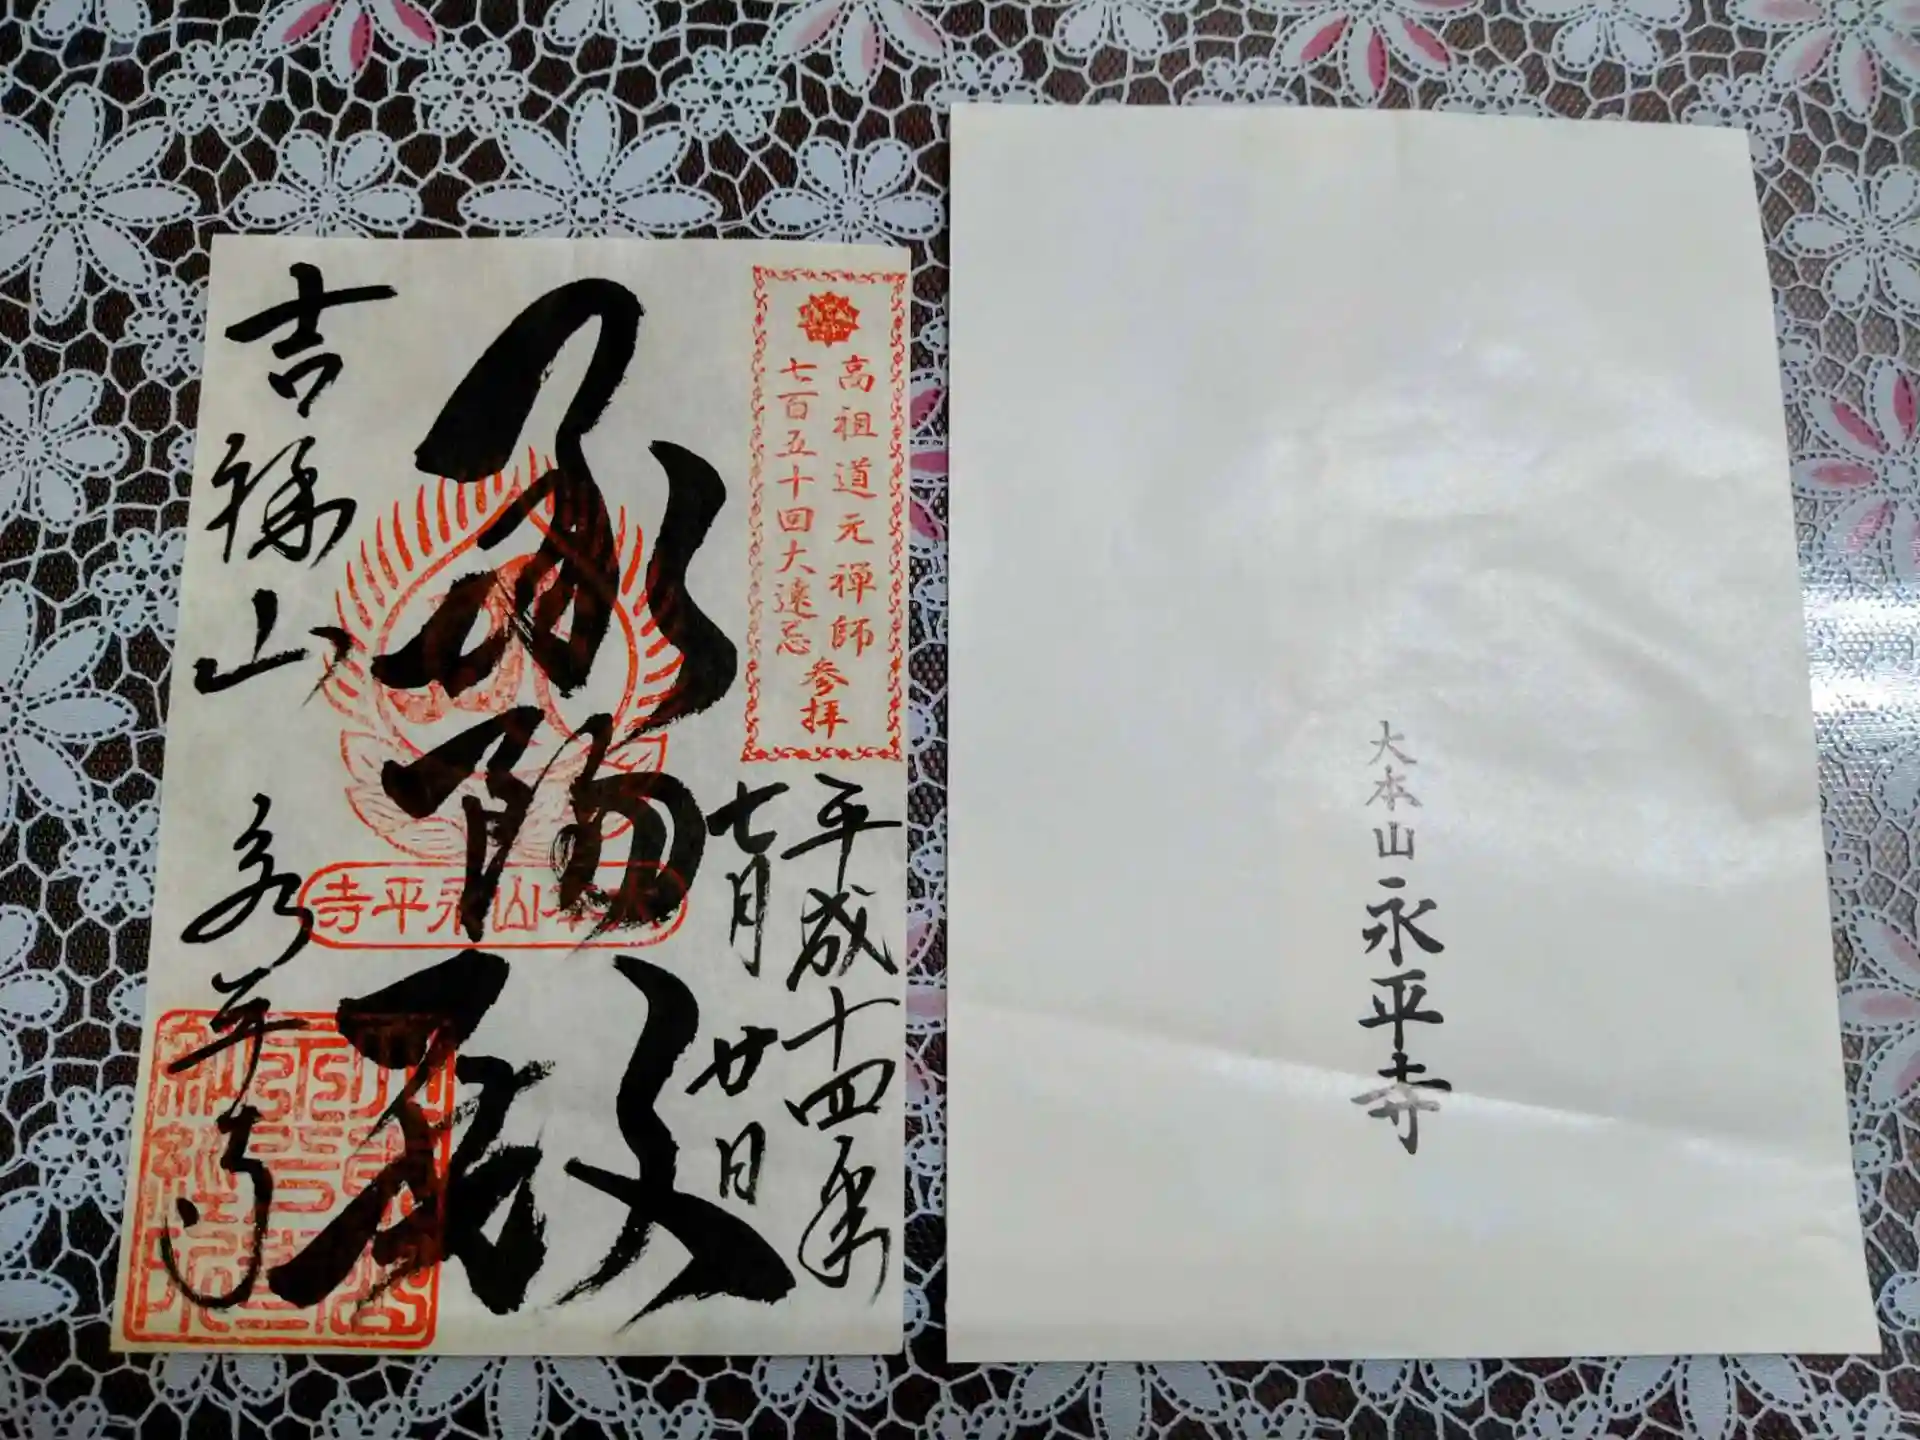 高祖道元禅師
七百五十回大遠忌
参拝
平成十四年
七月廿日
承陽殿
大本山永平寺
吉祥山永平寺
大本山
永平寺